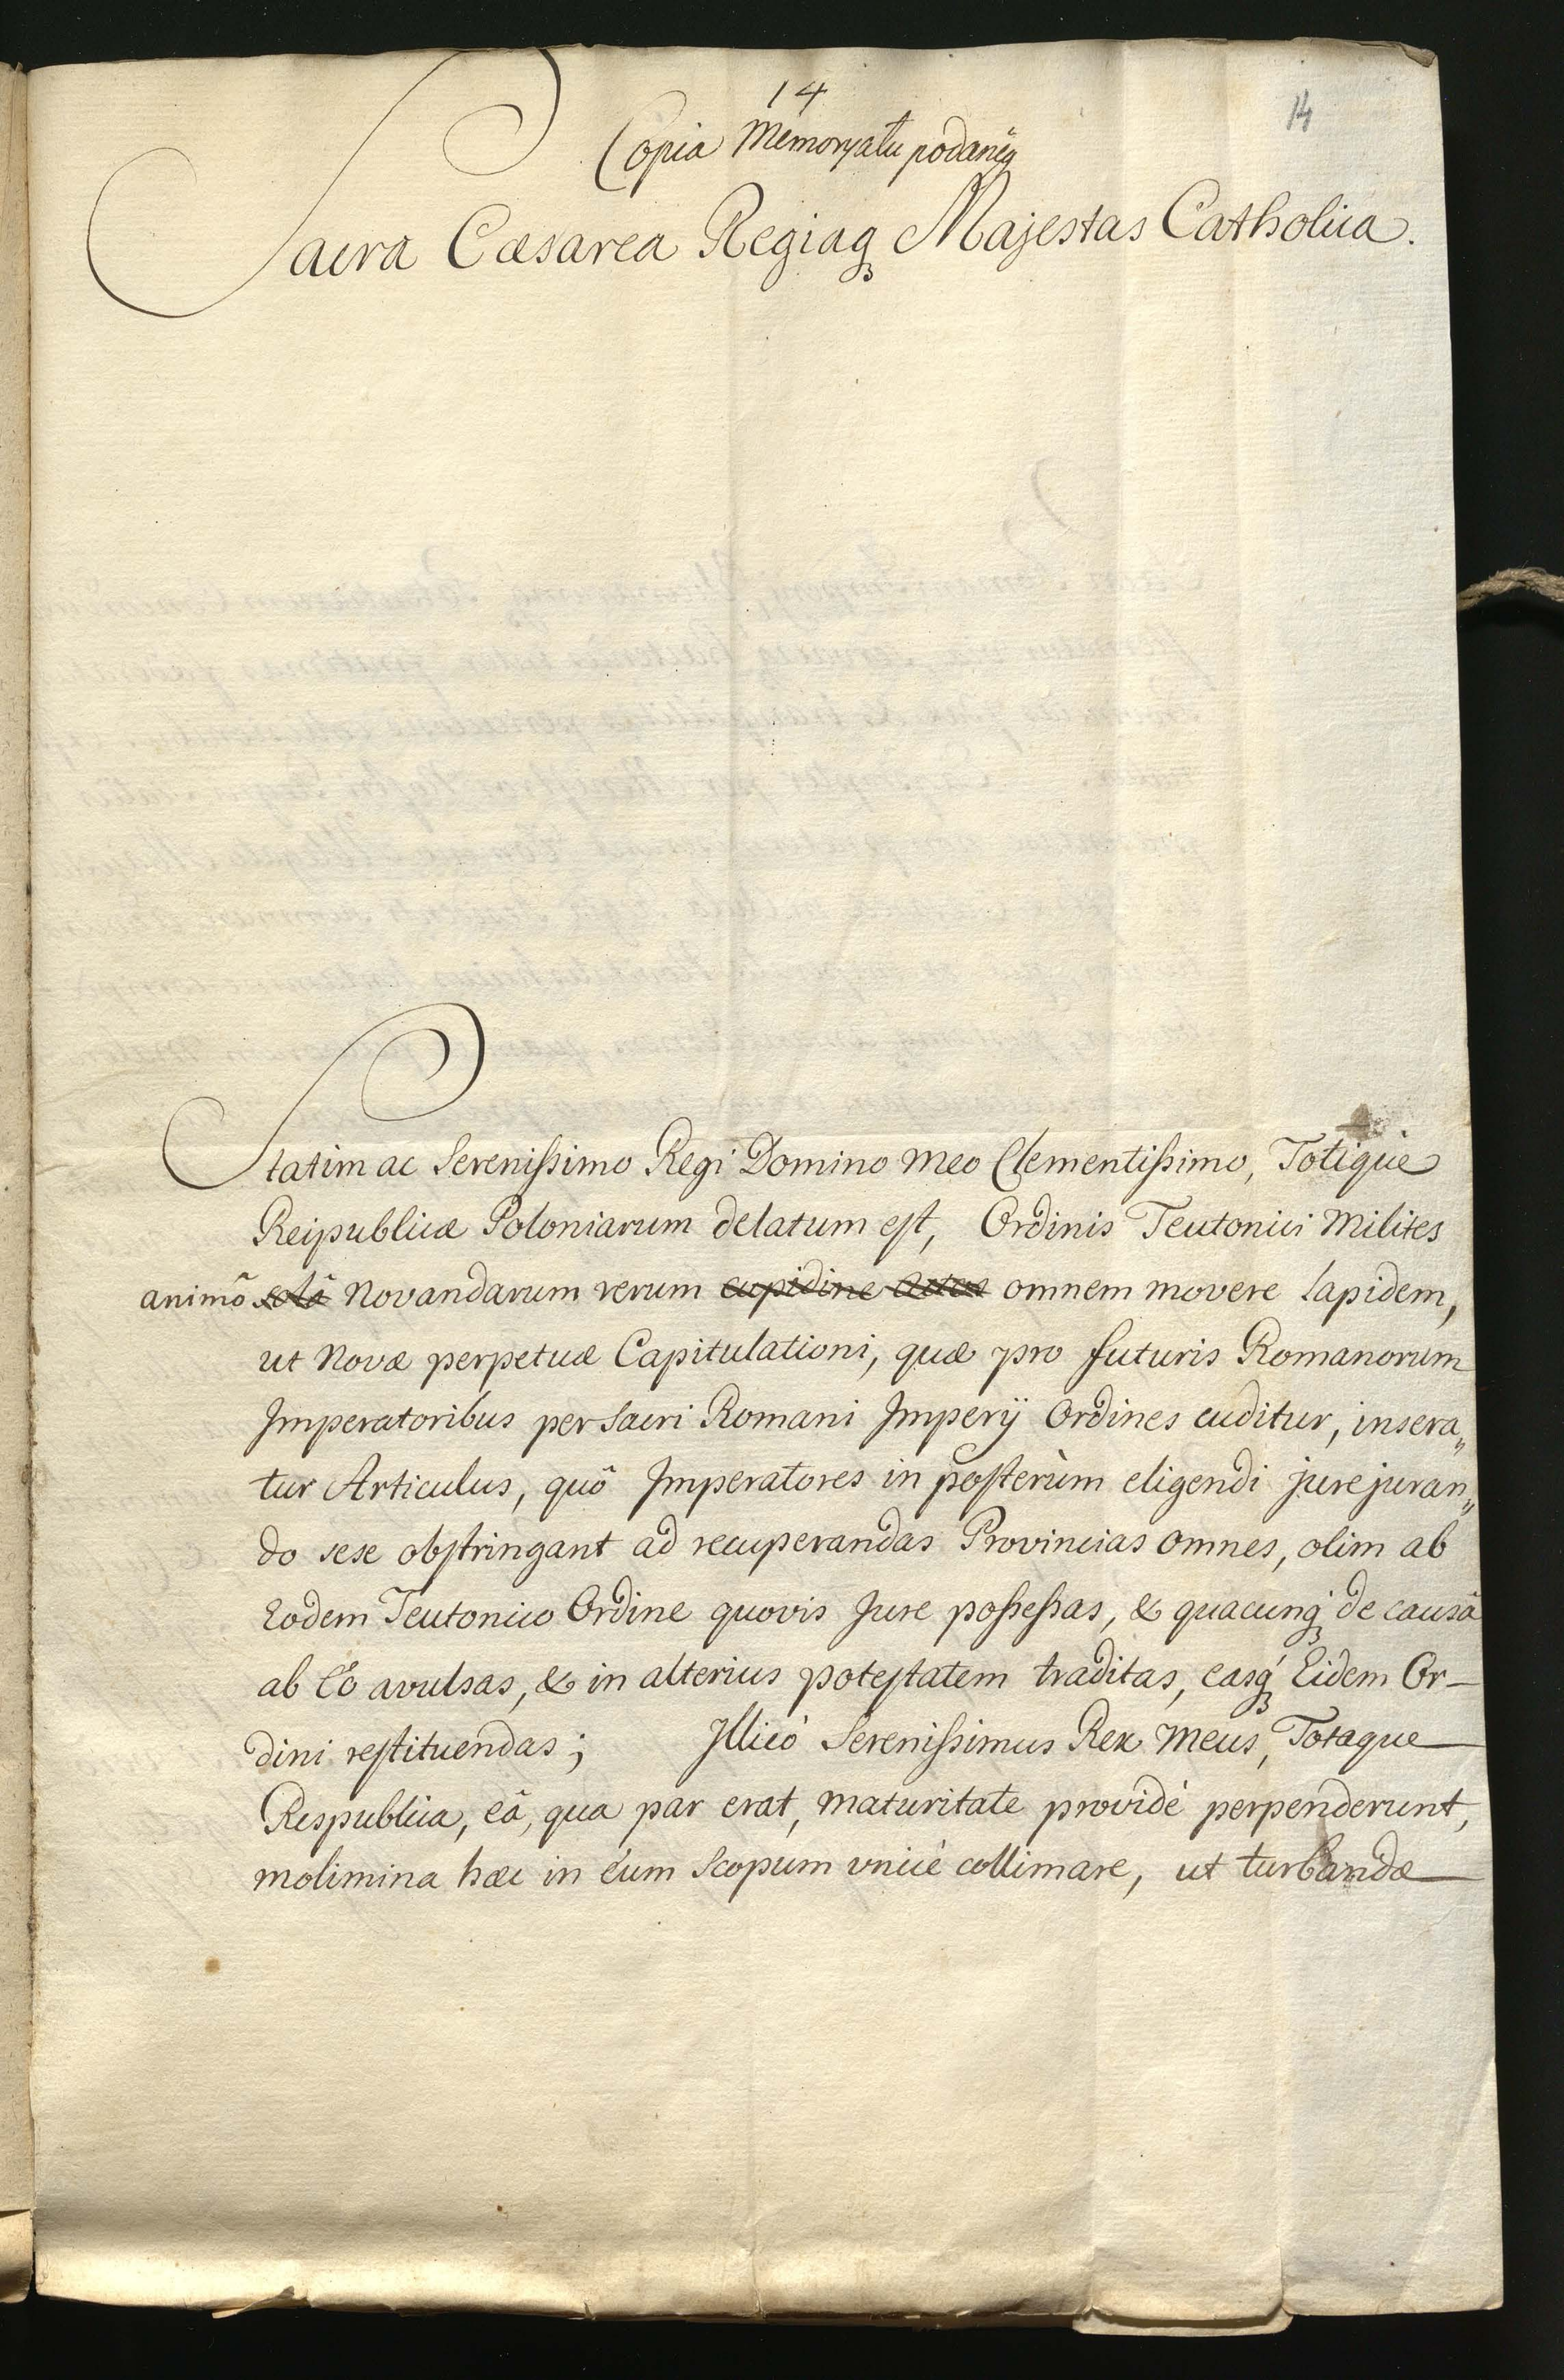 14
14
Copia Memoryału podaneg̃
Sacra Cæsarea Regiaq₃ Majestas Catholica.
Statim ac Serenissimo Regi Domino Meo Clementissimo, Totique
Reipublicæ Poloniarum delatum est, Ordinis Teutonici Milites
animô solâ Novandarum rerum cupidine omnem movere lapidem,
ut Novæ perpetuæ Capitulationi, quæ pro futuris Romanorum
Imperatoribus per Sacri Romani Imperÿ Ordines cuditur, insera„
tur Articulus, quô Imperatores in posterùm eligendi jurejuran„
do sese obstringant ad recuperandas Provincias omnes, olim ab
Eodem Teutonico Ordine quovis Jure possessas, & quacunq₃ de causâ
ab Eô avulsas, & in alterius potestatem traditas, easq₃ Eidem Or-
dini restituendas; Illicò Serenissimus Rex Meus, Totaque
Respublica, eâ, qua par erat, maturitate providè perpenderunt,
molimina hæc in eum Scopum vnicè collimare, ut turbandæ